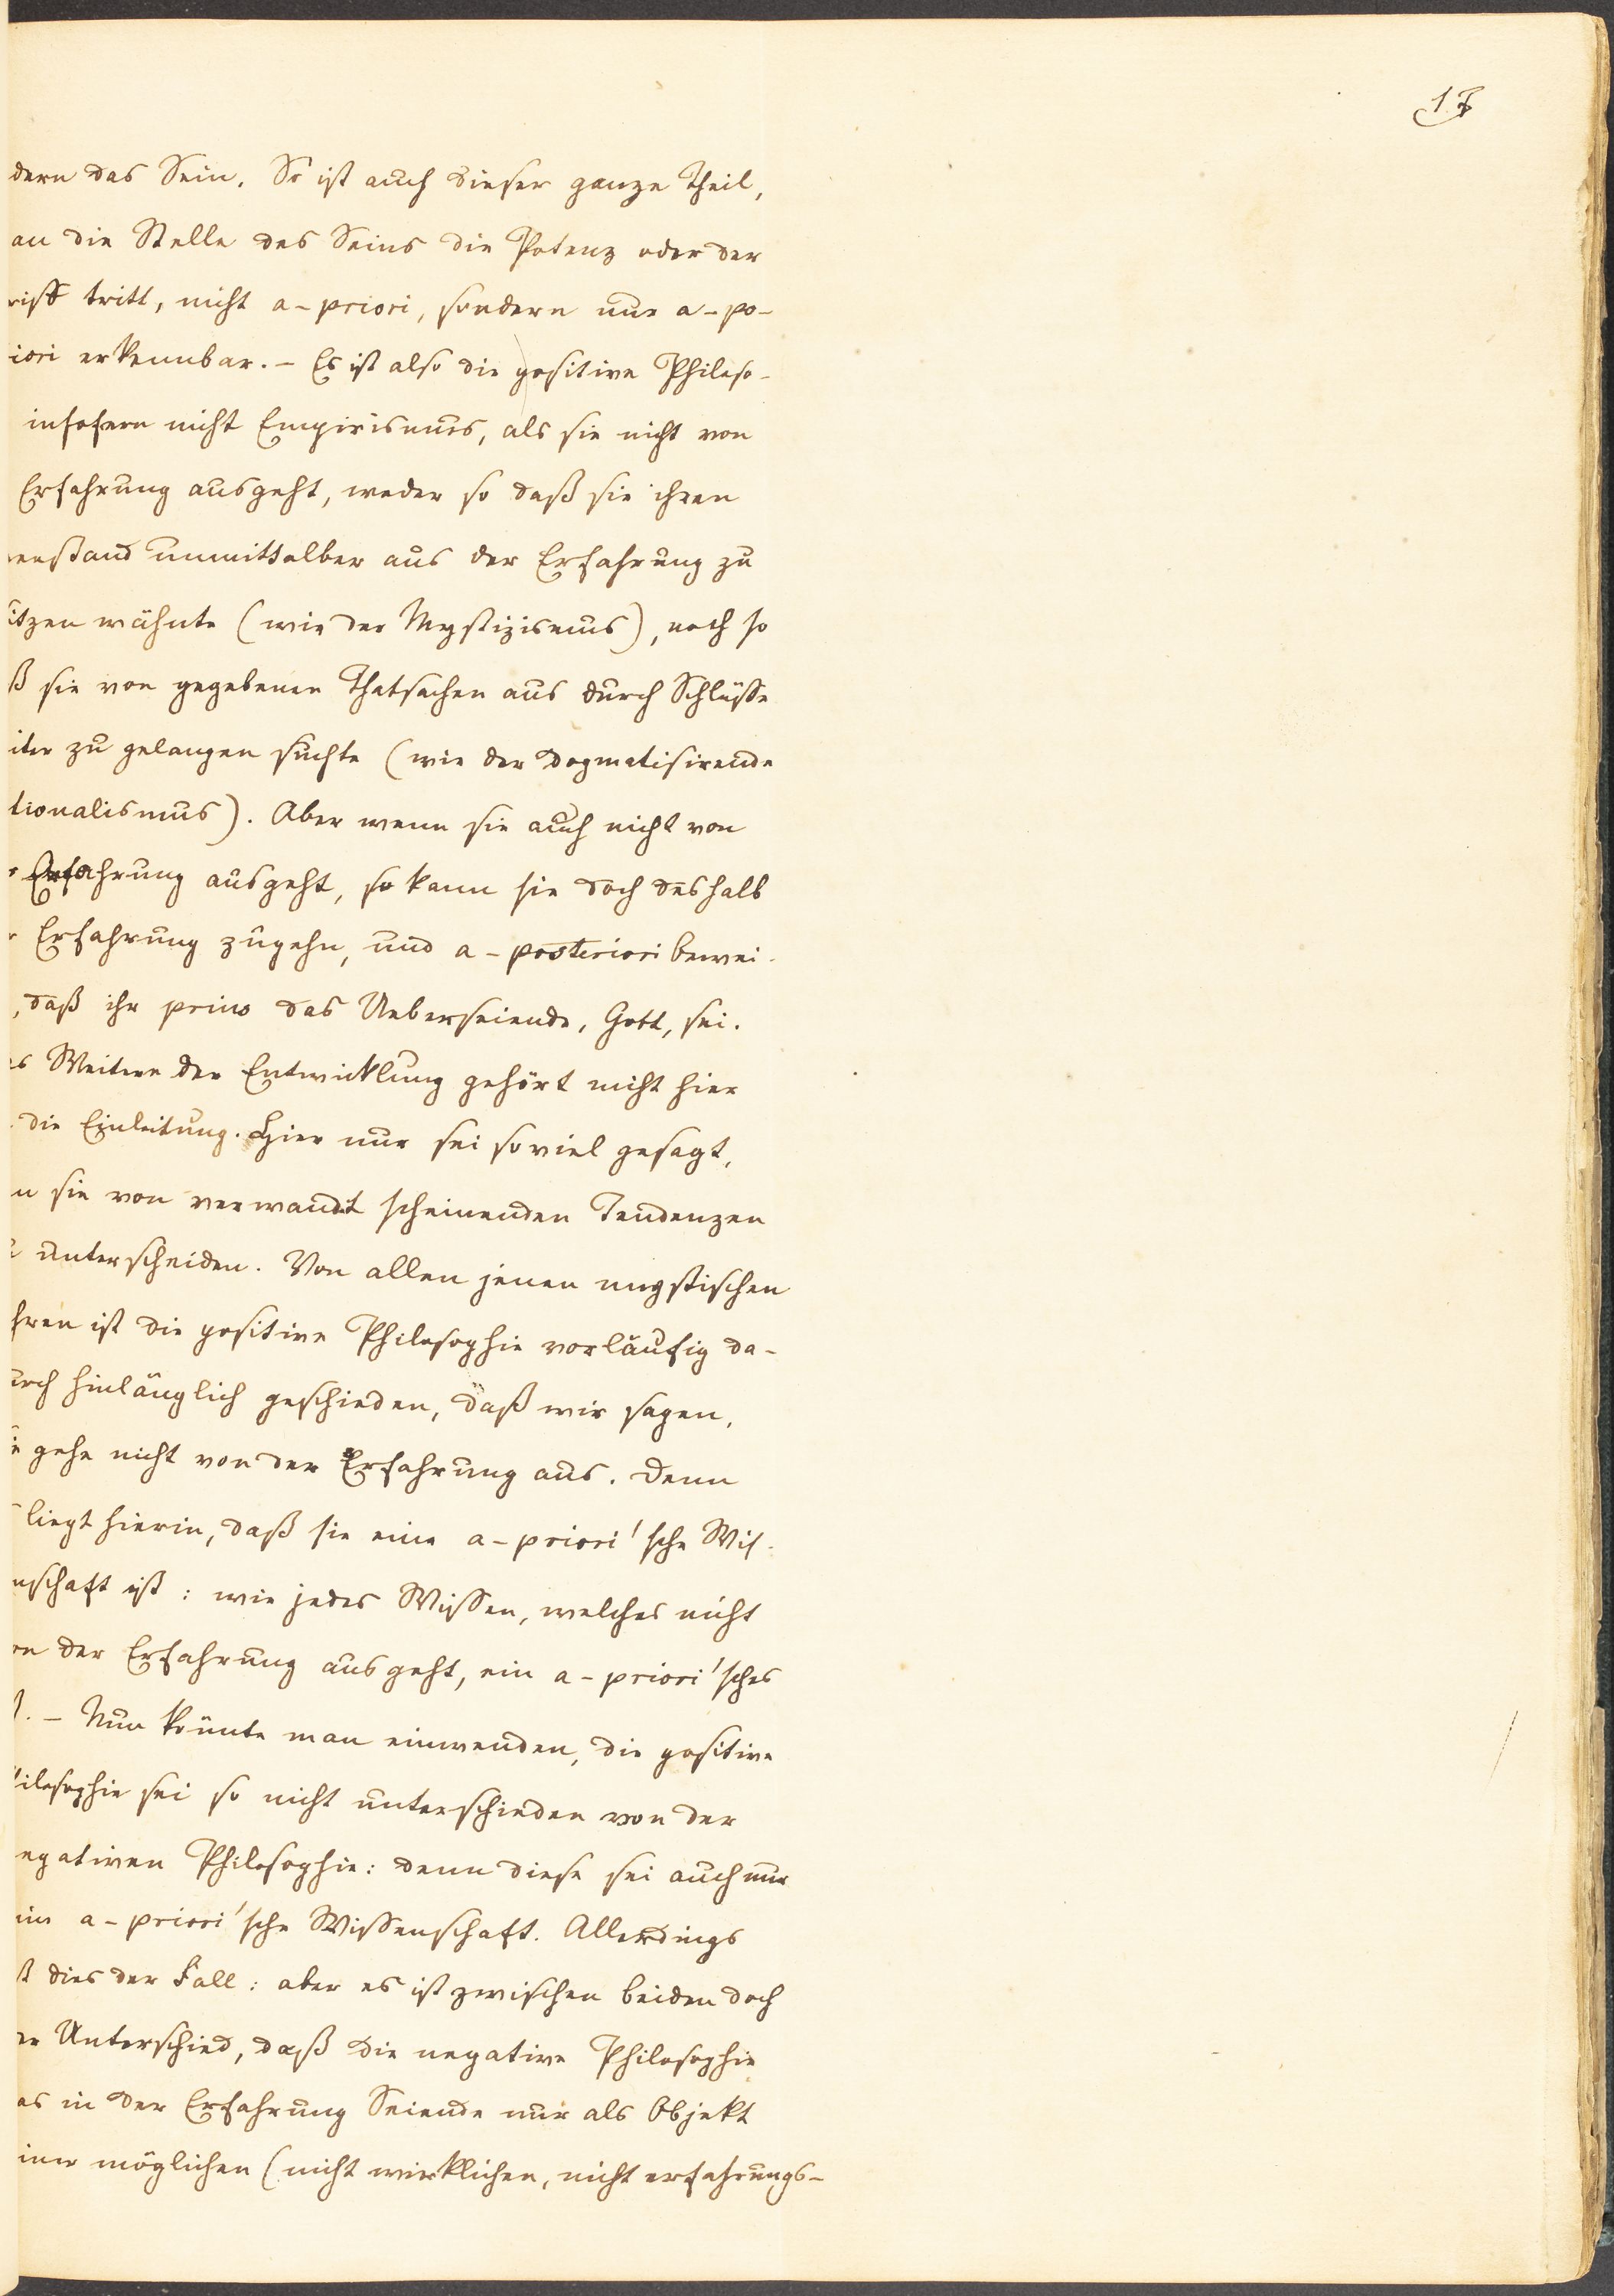 17
dern das Sein. So ist auch dieser ganze Theil,
an die Stelle des Seins die Potenz oder der
riff tritt, nicht a-priori, sondern nur a-po-
iori erkennbar. – Es ist also die positive Philoso-
insofern nicht Empirismus, als sie nicht von
Erfahrung ausgeht, weder so daß sie ihren
enstand unmittelbar aus der Erfahrung zu
itzen wähnte (wie der Mystizismus), noch so
ß sie von gegebenen Thatsachen aus durch Schlüsse
iter zu gelangen suchte (wie der dogmatisirende
tionalismus). Aber wenn sie auch nicht von
r Erfahrung ausgeht, so kann sie doch deshalb
r Erfahrung zugehn, und a-posteriori bewei-
, daß ihr prius das Ueberseiende, Gott, sei.
as Weitere der Entwicklung gehört nicht hier
die Einleitung. Hier nur sei soviel gesagt,
m sie von verwandt scheinenden Tendenzen
u unterscheiden. Von allen jenen mystischen
hren ist die positive Philosophie vorläufig da-
urch hinlänglich geschieden, daß wir sagen,
ie gehe nicht von der Erfahrung aus. Denn
s liegt hierin, daß sie eine a-priori'sche Wis-
nschaft ist: wie jedes Wissen, welches nicht
on der Erfahrung ausgeht, ein a-priori'sches
t. – Nun könnte man einwenden, die positive
hilosophie sei so nicht unterschieden von der
egativen Philosophie: denn diese sei auch nur
ine a-priori'sche Wissenschaft. Allerdings
st dies der Fall: aber es ist zwischen beiden doch
er Unterschied, daß die negative Philosophie
as in der Erfahrung Seiende nur als Objekt
iner möglichen (nicht wirklichen, nicht erfahrungs-